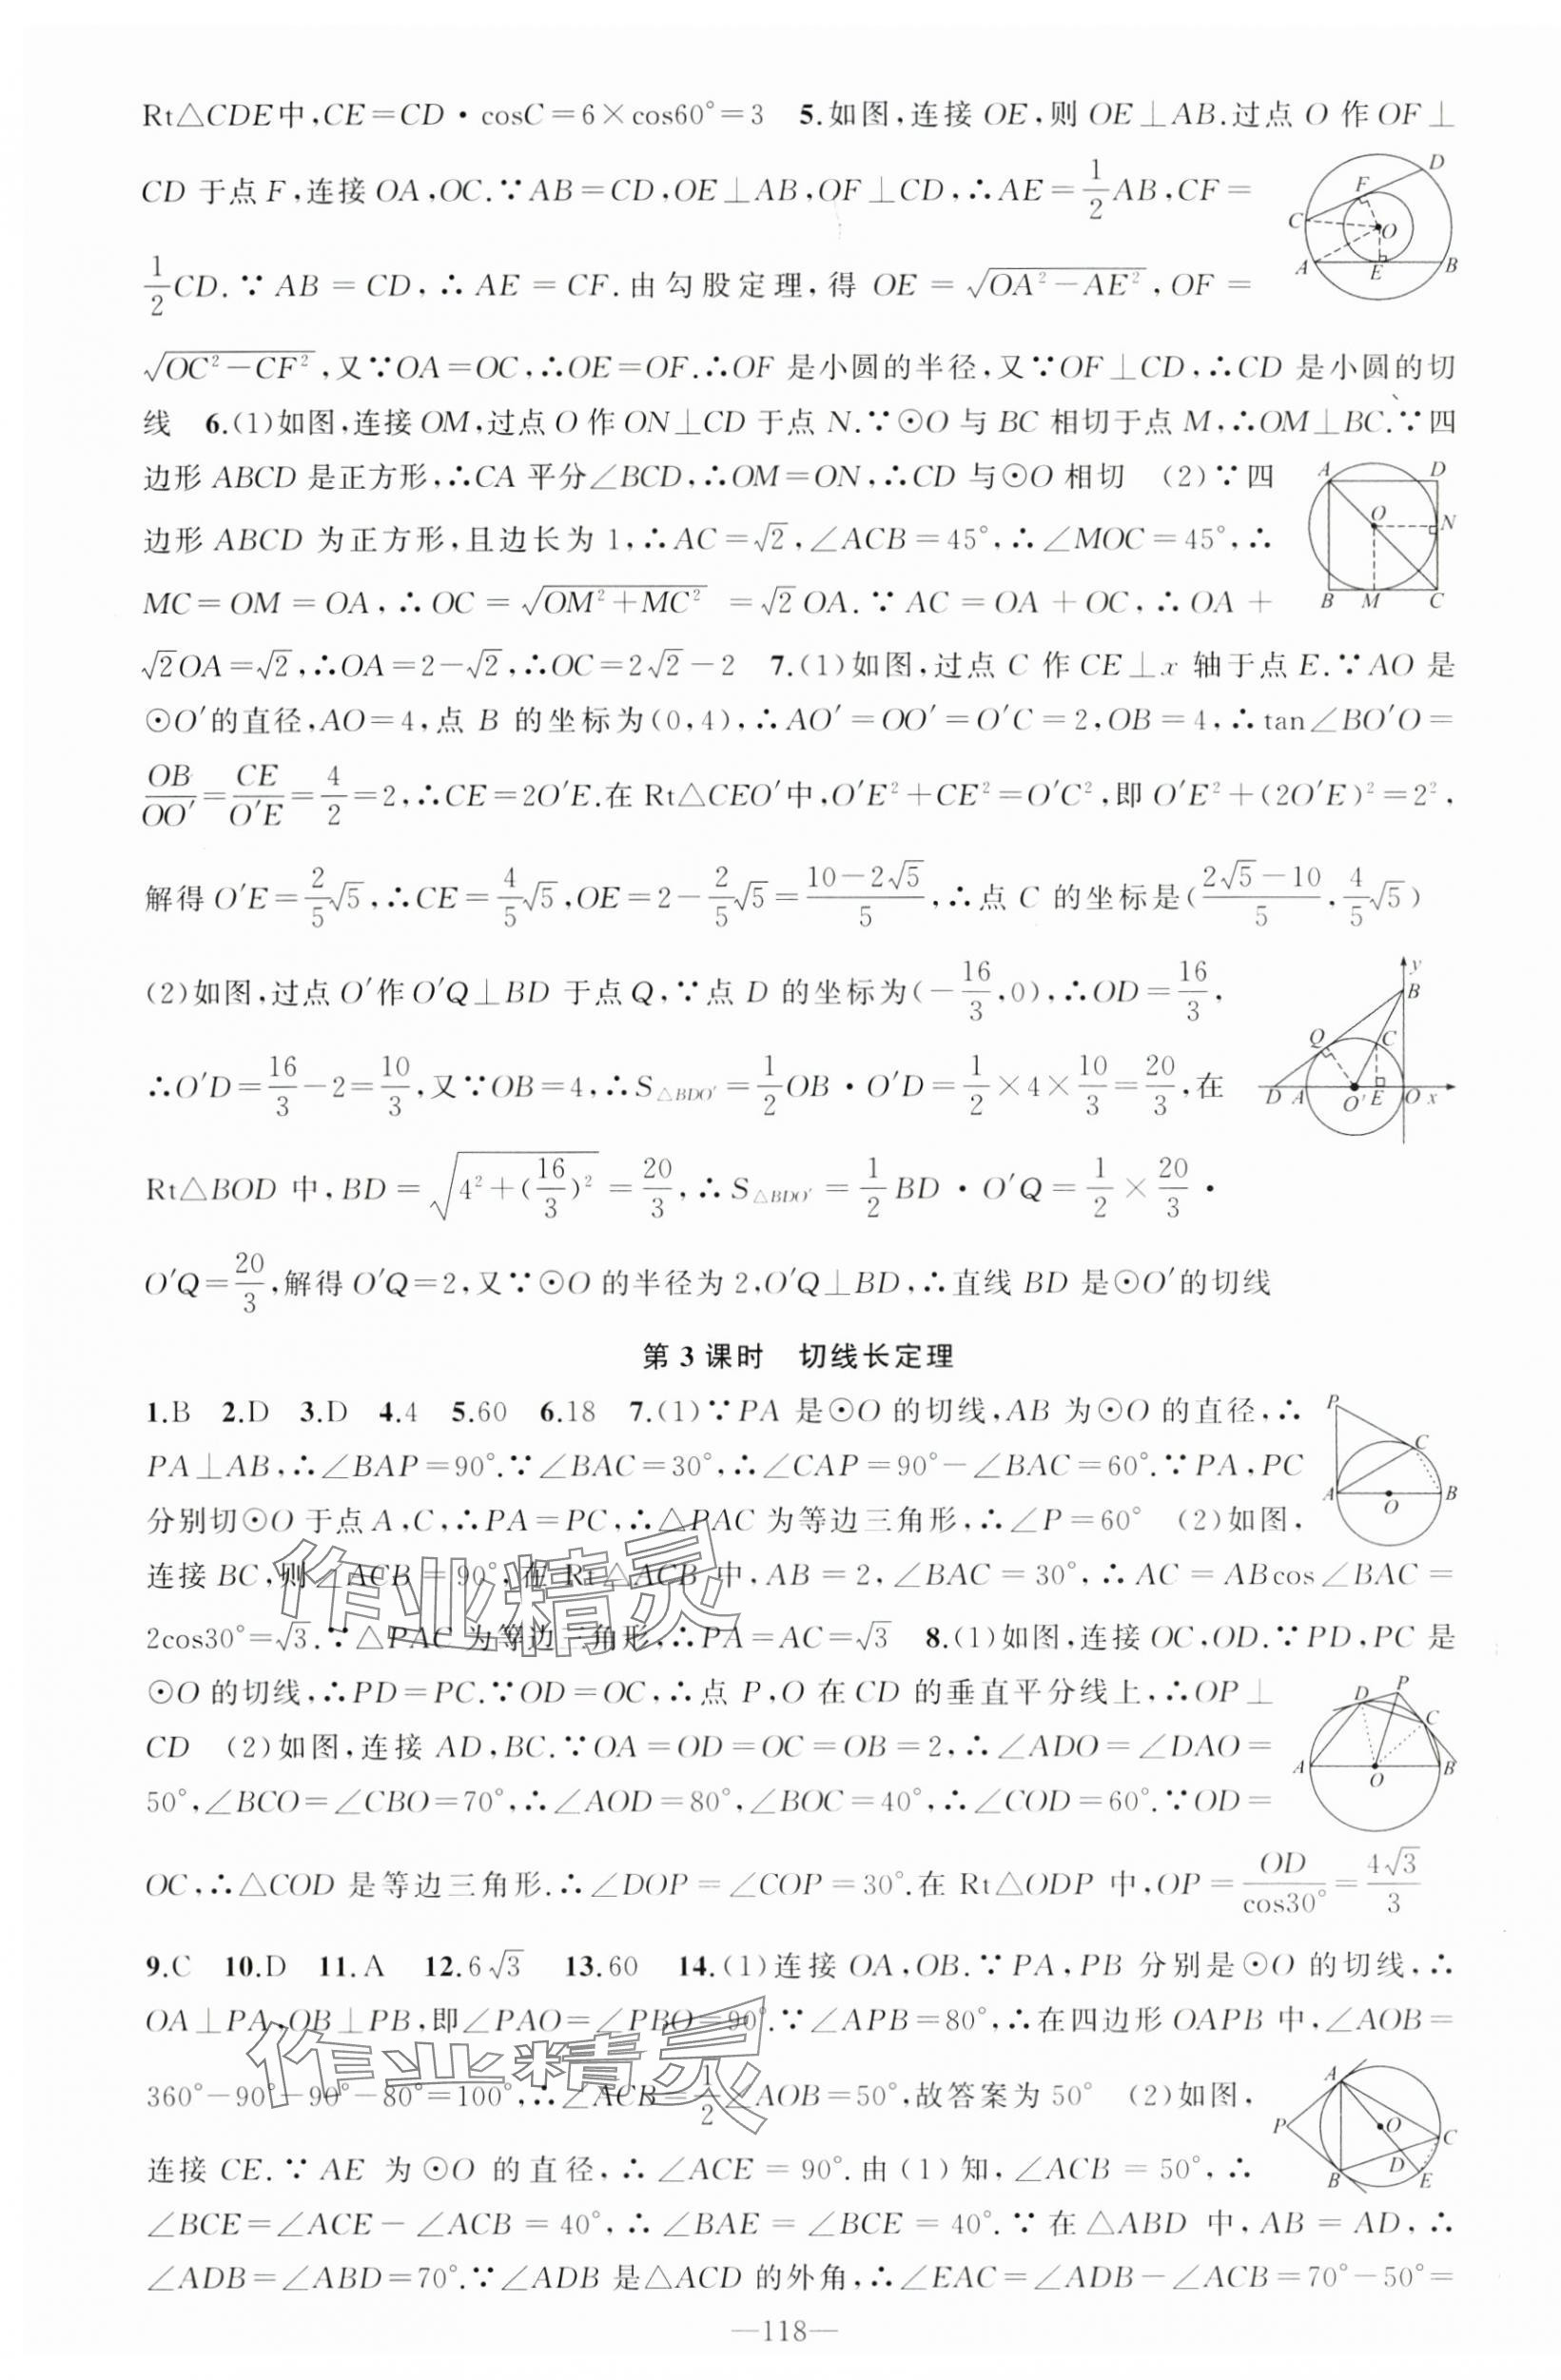 Rt△CDE中,CE=CD·cosC=6×cos60°=3　5.如图,连接 OE,则 OE⊥AB.过点 O 作 OF⊥
CD 于点 F,连接 OA,OC.∵AB=CD,OE⊥AB,OF⊥CD,∴AE=\frac{1}{2}AB,CF=
\frac{1}{2}CD.∵AB=CD,∴AE=CF.由勾股定理,得 OE=\sqrt{OA²-AE²},OF=
\sqrt{OC²-CF²},又∵OA=OC,∴OE=OF.∴OF 是小圆的半径,又∵OF⊥CD,∴CD 是小圆的切
线　6.(1)如图,连接 OM,过点 O 作 ON⊥CD 于点 N.∵⊙O 与 BC 相切于点 M,∴OM⊥BC.∵四
边形 ABCD 是正方形,∴CA 平分∠BCD,∴OM=ON,∴CD 与⊙O 相切　(2)∵四
边形 ABCD 为正方形,且边长为 1,∴AC=√2,∠ACB=45°,∴∠MOC=45°,∴
MC=OM=OA,∴OC=\sqrt{OM²+MC²}=√2OA.∵AC=OA+OC,∴OA+
√2OA=√2,∴OA=2-√2,∴OC=2√2-2　7.(1)如图,过点 C 作 CE⊥x 轴于点 E.∵AO 是
⊙O′的直径,AO=4,点 B 的坐标为(0,4),∴AO′=OO′=O′C=2,OB=4,∴tan∠BO′O=
\frac{OB}{OO′}=\frac{CE}{O′E}=\frac{4}{2}=2,∴CE=2O′E.在 Rt△CEO′中,O′E²+CE²=O′C²,即 O′E²+(2O′E)²=2²,
解得 O′E=\frac{2}{5}√5,∴CE=\frac{4}{5}√5,OE=2-\frac{2}{5}√5=\frac{10-2√5}{5},∴点 C 的坐标是(\frac{2√5-10}{5},\frac{4}{5}√5)
(2)如图,过点 O′作 O′Q⊥BD 于点 Q,∵点 D 的坐标为(-\frac{16}{3},0),∴OD=\frac{16}{3},
∴O′D=\frac{16}{3}-2=\frac{10}{3},又∵OB=4,∴S△BDO′=\frac{1}{2}OB·O′D=\frac{1}{2}×4×\frac{10}{3}=\frac{20}{3},在
Rt△BOD 中,BD=\sqrt{4²+(\frac{16}{3})²}=\frac{20}{3},∴S△BDO′=\frac{1}{2}BD·O′Q=\frac{1}{2}×\frac{20}{3}·
O′Q=\frac{20}{3},解得 O′Q=2,又∵⊙O 的半径为 2,O′Q⊥BD,∴直线 BD 是⊙O′的切线
第 3 课时　切线长定理
1.B　2.D　3.D　4.4　5.60　6.18　7.(1)∵PA 是⊙O 的切线,AB 为⊙O 的直径,∴
PA⊥AB,∴∠BAP=90°.∵∠BAC=30°,∴∠CAP=90°-∠BAC=60°.∵PA,PC
分别切⊙O 于点 A,C,∴PA=PC,∴△PAC 为等边三角形,∴∠P=60°　(2)如图,
连接 BC,则∠ACB=90°,在 Rt△ACB 中,AB=2,∠BAC=30°,∴AC=ABcos∠BAC=
2cos30°=√3.∵△PAC 为等边三角形,∴PA=AC=√3　8.(1)如图,连接 OC,OD.∵PD,PC 是
⊙O 的切线,∴PD=PC.∵OD=OC,∴点 P,O 在 CD 的垂直平分线上,∴OP⊥
CD　(2)如图,连接 AD,BC.∵OA=OD=OC=OB=2,∴∠ADO=∠DAO=
50°,∠BCO=∠CBO=70°,∴∠AOD=80°,∠BOC=40°,∴∠COD=60°.∵OD=
OC,∴△COD 是等边三角形.∴∠DOP=∠COP=30°.在 Rt△ODP 中,OP=\frac{OD}{cos30°}=\frac{4√3}{3}
9.C　10.D　11.A　12.6√3　13.60　14.(1)连接 OA,OB.∵PA,PB 分别是⊙O 的切线,∴
OA⊥PA,OB⊥PB,即∠PAO=∠PBO=90°.∵∠APB=80°,∴在四边形 OAPB 中,∠AOB=
360°-90°-90°-80°=100°,∴∠ACB=\frac{1}{2}∠AOB=50°,故答案为 50°　(2)如图,
连接 CE.∵AE 为⊙O 的直径,∴∠ACE=90°.由(1)知,∠ACB=50°,∴
∠BCE=∠ACE-∠ACB=40°,∴∠BAE=∠BCE=40°.∵在△ABD 中,AB=AD,∴
∠ADB=∠ABD=70°.∵∠ADB 是△ACD 的外角,∴∠EAC=∠ADB-∠ACB=70°-50°=
—118—
作业精灵
作业精灵